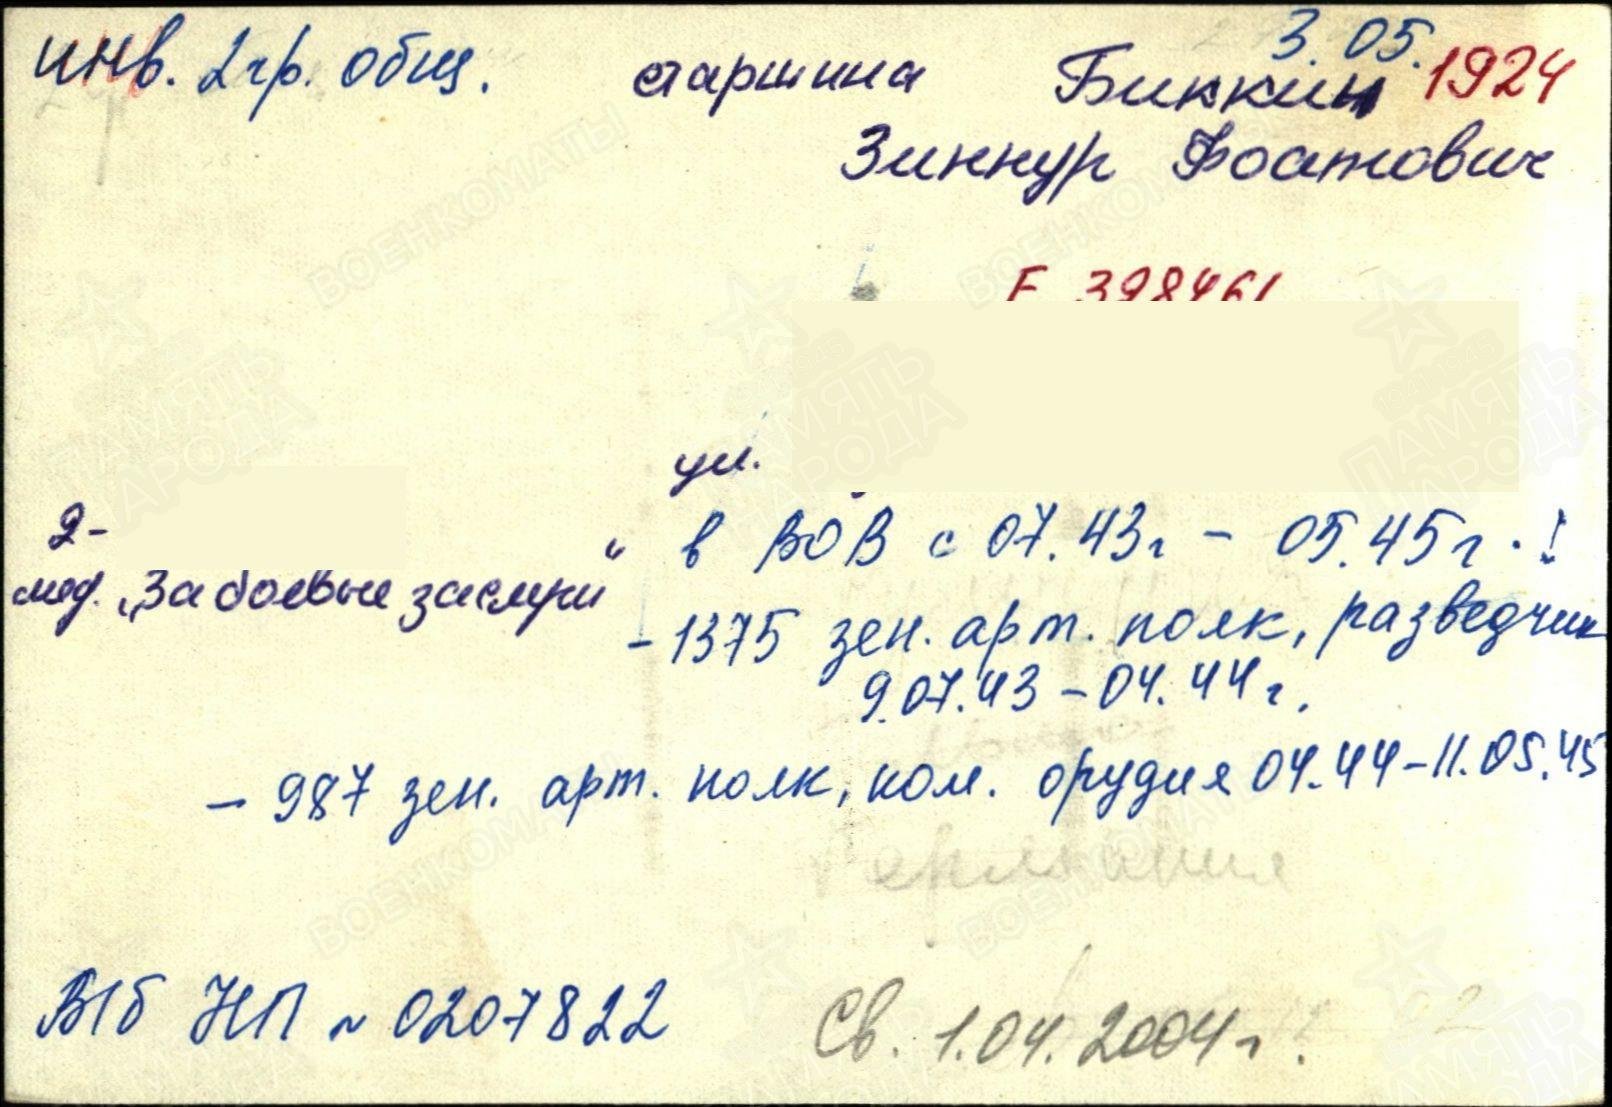 3.05.
инв. 2 гр. общ. старшина Биккин 1924
Зиннур Фоатович
ул.
2-
" в ВОВ с 07.43г - 05.45г.!
мед. „За боевые заслуги
- 1375 зен. арт. полк, разведчик
9.07.43 - 04.44г.
- 987 зен. арт. полк, ком. орудия 04.44-11.05.45
Германия
ВПб НП № 0207822
Св. 1.04.2004г.
ВОЕНКОМАТЫ
ПАМЯТЬ НАРОДА